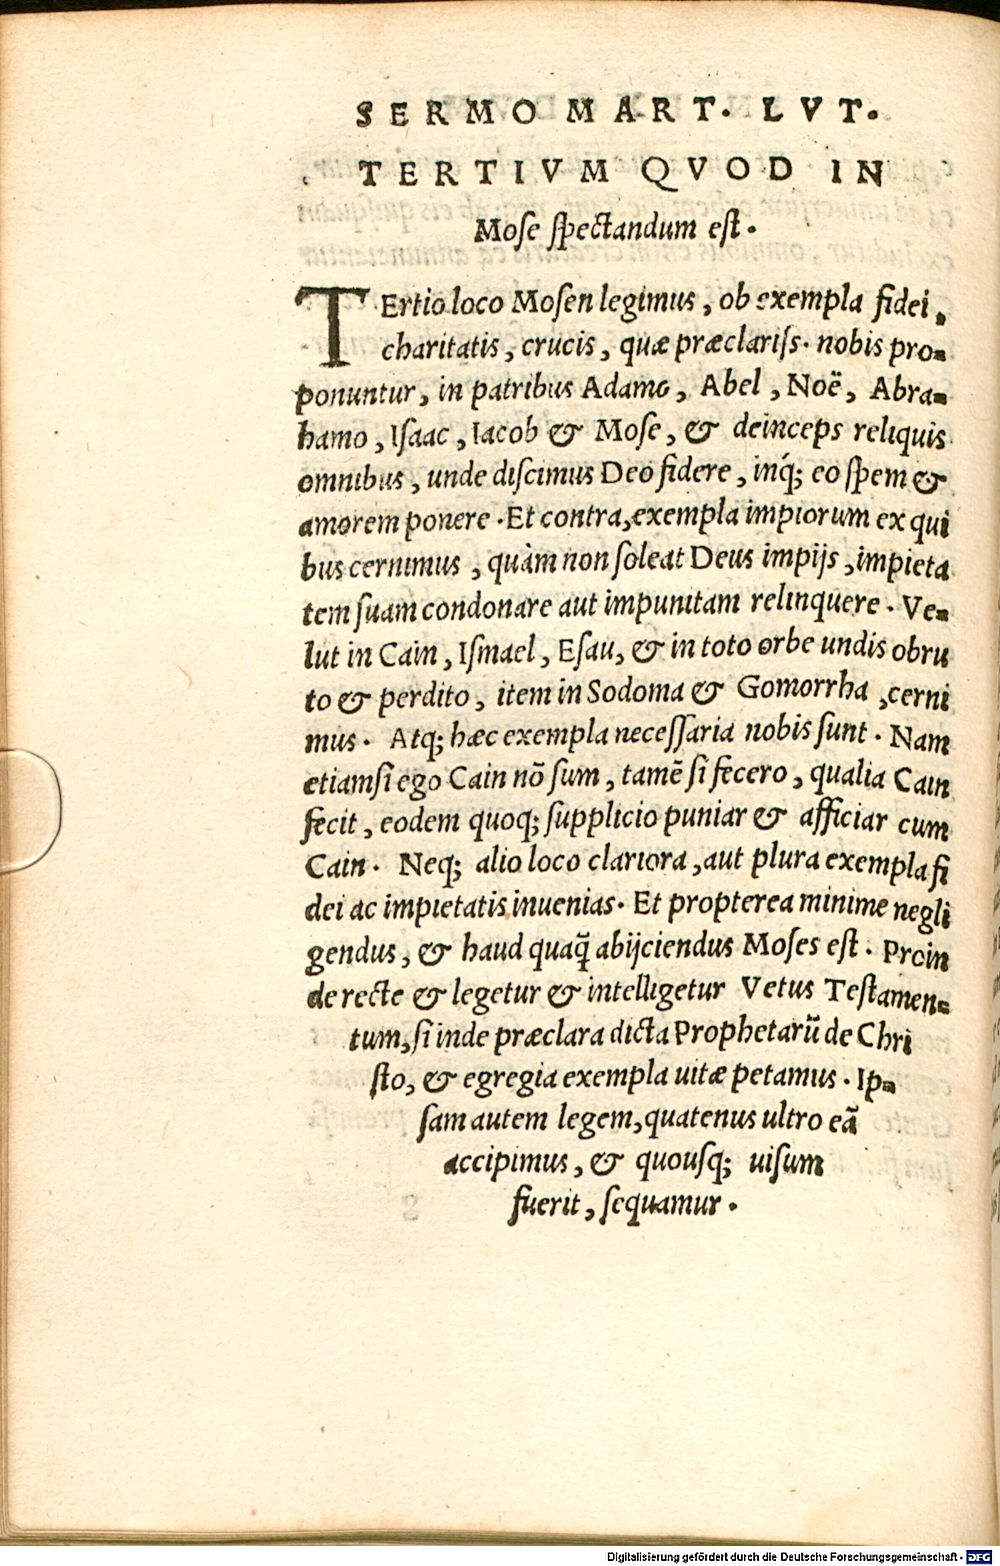 SERMO MART. LVT.
TERTIVM QVOD IN
Mose spectandum est.
TErtio loco Mosen legimus, ob exempla fidei,
charitatis, crucis, quæ præclariss. nobis pro-
ponuntur, in patribus Adamo, Abel, Noë, Abra-
hamo, Isaac, Iacob & Mose, & deinceps reliquis
omnibus, unde discimus Deo fidere, inq́; eo spem &
amorem ponere. Et contra, exempla impiorum ex qui
bus cernimus, quàm non soleat Deus impijs, impieta
tem suam condonare aut impunitam relinquere. Ve-
lut in Cain, Ismael, Esau, & in toto orbe undis obru
to & perdito, item in Sodoma & Gomorrha, cerni
mus. Atq; hæc exempla necessaria nobis sunt. Nam
etiamsi ego Cain nõ sum, tamẽ si fecero, qualia Cain
fecit, eodem quoq; supplicio puniar & afficiar cum
Cain. Neq; alio loco clariora, aut plura exempla fi
dei ac impietatis inuenias. Et propterea minime negli
gendus, & haud quaq̃ abijciendus Moses est. Proin
de recte & legetur & intelligetur Vetus Testamen-
tum, si inde præclara dicta Prophetarũ de Chri
sto, & egregia exempla uitæ petamus. Ip-
sam autem legem, quatenus ultro eã
accipimus, & quousq; uisum
fuerit, sequamur.
Digitalisierung gefördert durch die Deutsche Forschungsgemeinschaft - DFG